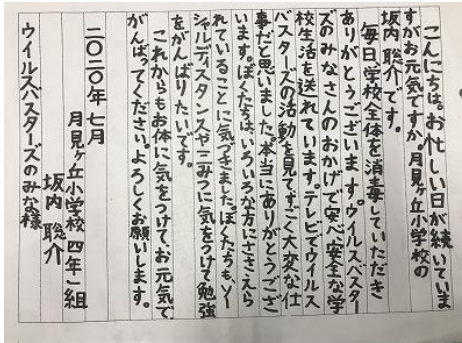 こんにちは。お忙しい日が続いていま
すがお元気ですか。月見ヶ丘小学校の
坂内聡介です。
毎日、学校全体を消毒していただき
ありがとうございます。ウイルスバスター
ズのみなさんのおかげで安心安全な学
校生活を送れています。テレビでウイルス
バスターズの活動を見てすごく大変な仕
事だと思いました。本当にありがとうござ
います。ぼくたちは、いろいろな方にささえら
れていることに気づきました。ぼくたちもソー
シャルディスタンスや三みつに気をつけて勉強
をがんばりたいです。
これからもお体に気をつけてお元気で
がんばってください。よろしくお願いします。
二〇二〇年七月
月見ヶ丘小学校 四年一組
坂内 聡介
ウイルスバスターズのみな様